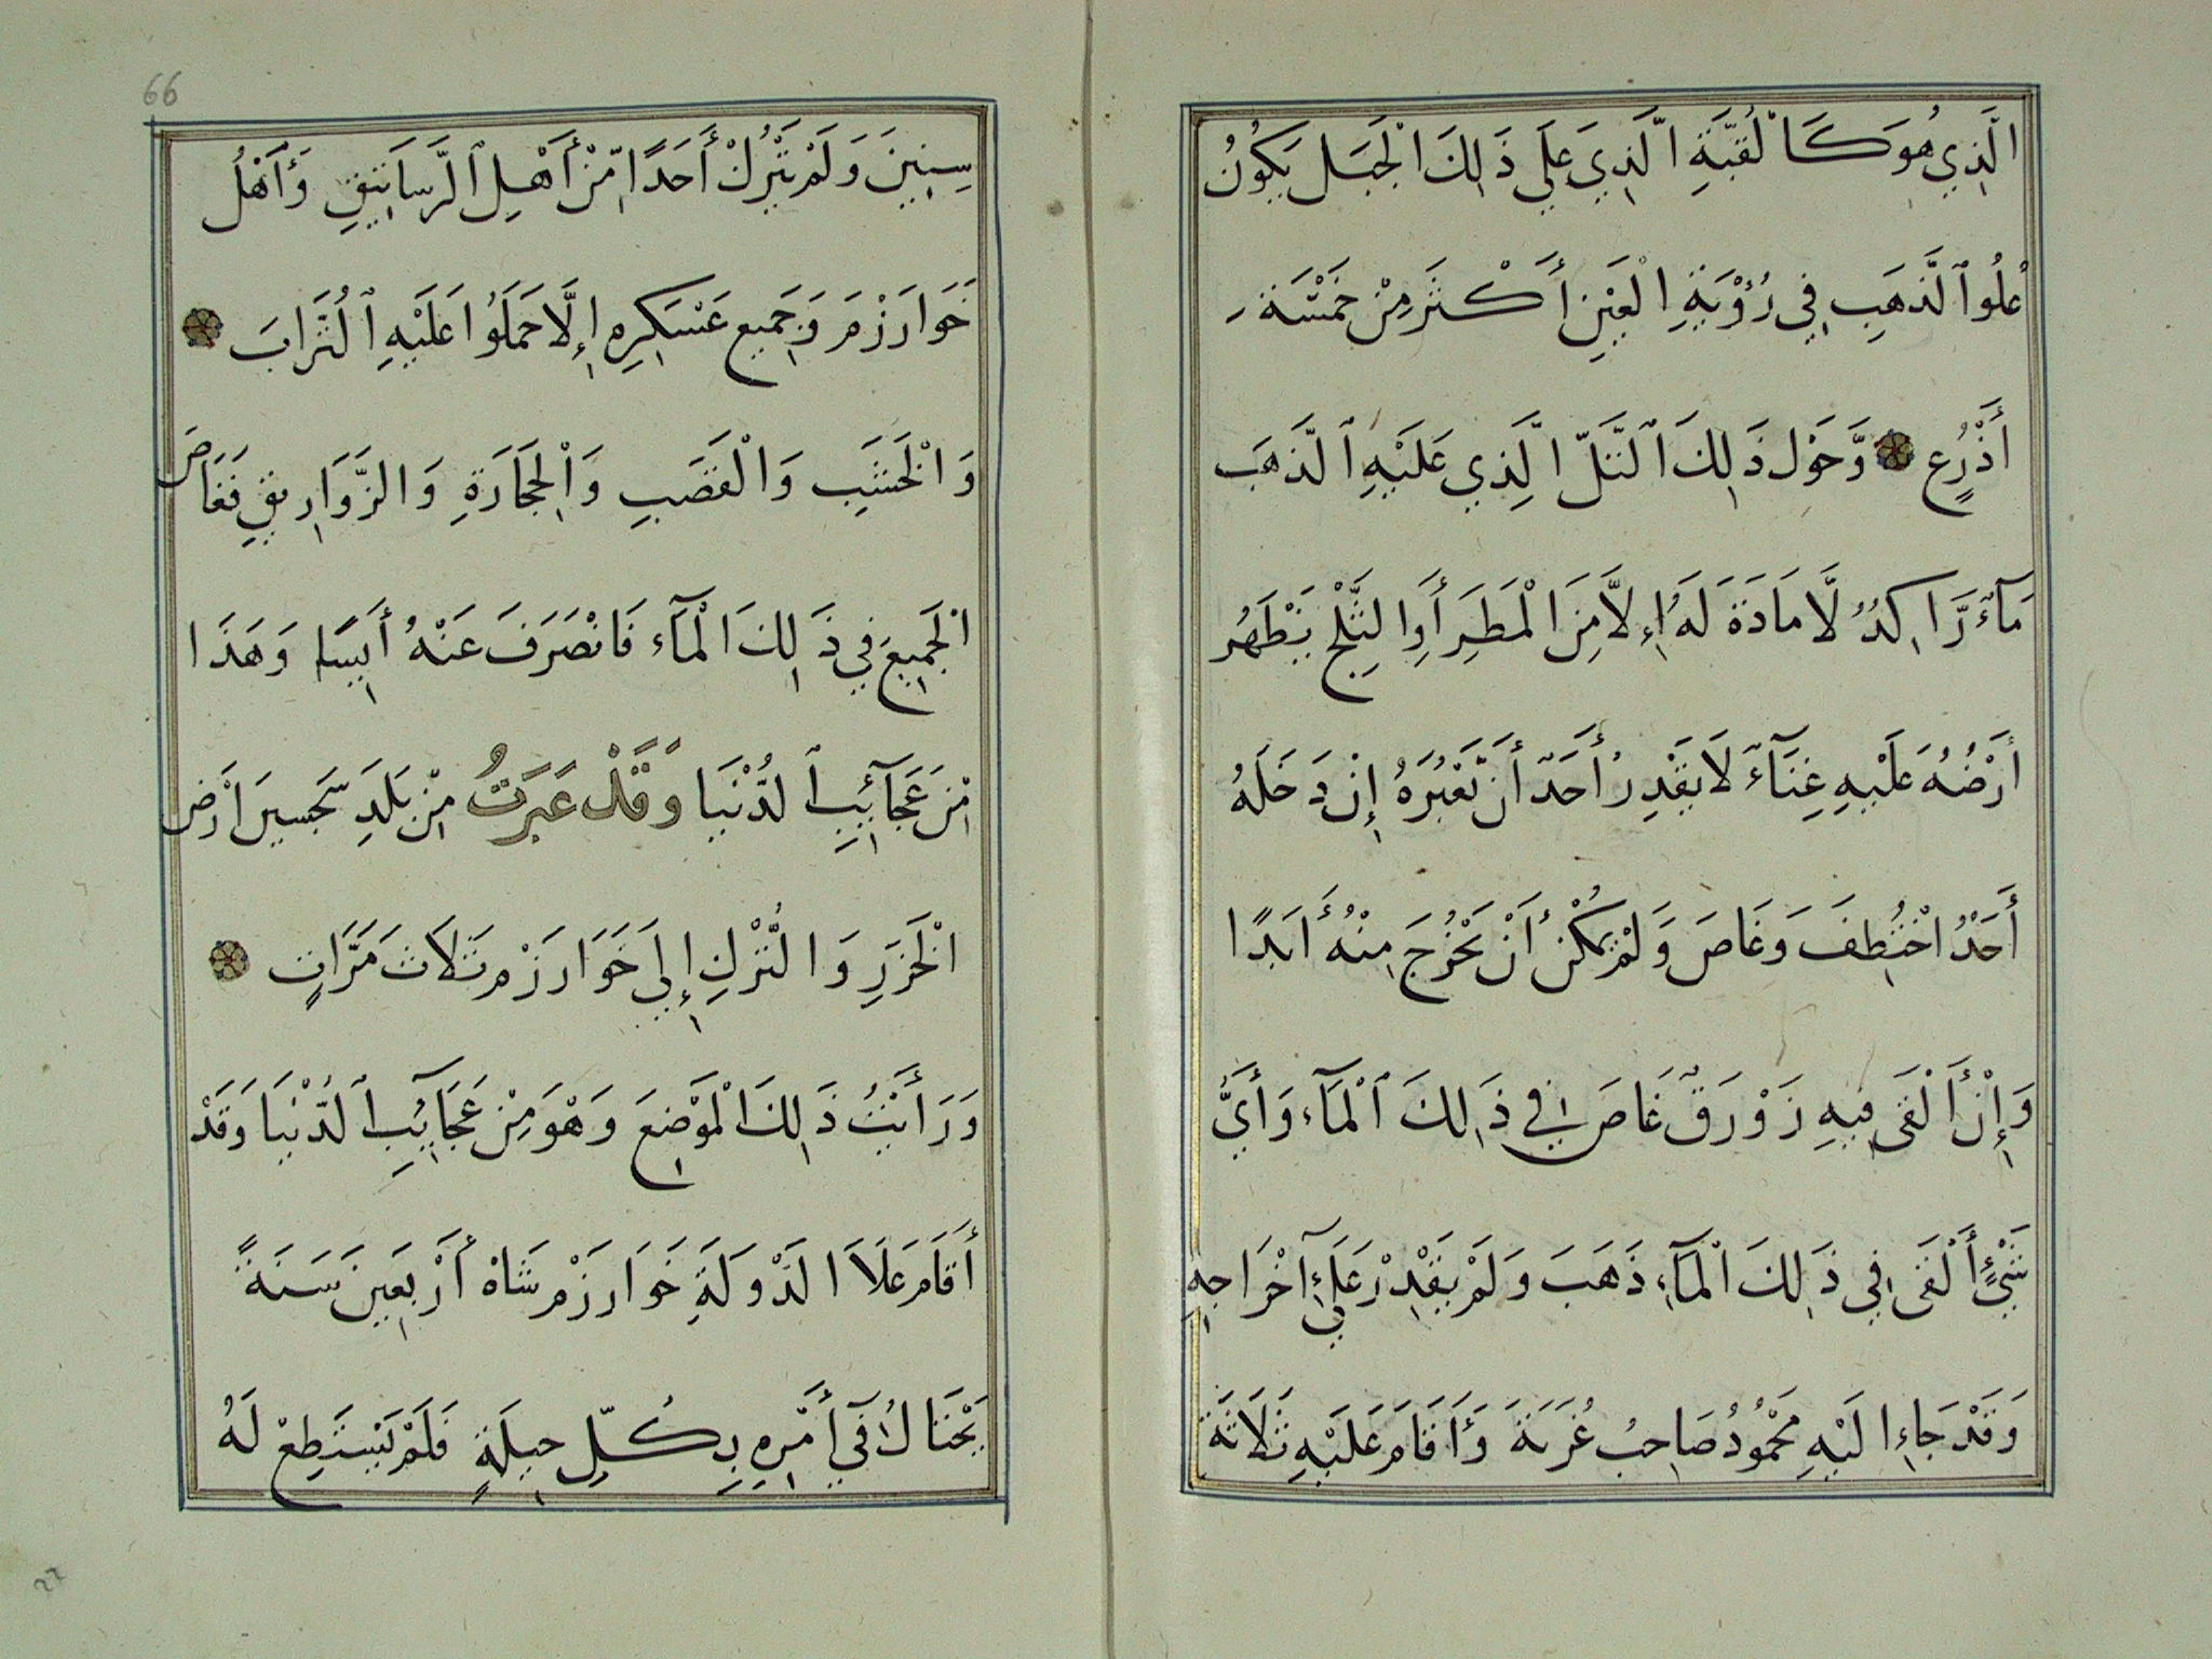 الَّذِي هُوَ كَالْقُبَّةِ الَّذِي عَلَي ذَالِكَ الْجَبَل يَكُونُ
عُلُو الذَّهَبِ فِي رُؤْيَةِ الْعَيْنِ أَكْثَرَ مِنْ خَمْسَة
أَذْرُعٍ وَّحَوْلَ ذَالِكَ التَّلّ الَّذِي عَلَيْهِ الذَّهَب
مَآءٌ رَّاكِدٌ لَّا مَادَةَ لَهُ إِلَّا مِنَ الْمَطَرِ أَوِ الثَّلْجِ يَظْهَرُ
أَرْضُهُ عَلَيْهِ غِنَآءً لَا يَقْدِرُ أَحَدٌ أَن يَّعْبُرَهُ إِنْ دَخَلَهُ
أَحَدٌ اخْتُطِفَ وَغَاصَ وَلَمْ يُمْكِنْ أَنْ يَخْرُجَ مِنْهُ أَبَدًا
وَإِنْ أَلْقَى فِيهِ زَوْرَقٌ غَاصَ فِي ذَالِكَ الْمَآءِ وَأَيُّ
شَيْئٍ أَلْقَى فِي ذَالِكَ الْمَآءِ ذَهَبَ وَلَمْ يَقْدِرْ عَلَي آخْرَاجِهِ
وَقَدْ جَاءَ إِلَيْهِ مَحْمُودُ صَاحِبُ غُزَنَةَ وَأَقَامَ عَلَيْهِ ثَلَاثَةَ
66
سِنِينَ وَلَمْ يَتْرُكْ أَحَدًا مِّنْ أَهْلِ الرَّسَاتِيقِ وَأَهْلُ
خَوَارَزْمَ وَجَمِيعِ عَسْكَرِهِ إِلَّا حَمَلُوا عَلَيْهِ التُّرَابَ
وَالْخَشَبِ وَالْقَصَبِ وَالْحِجَارَةِ وَالزَّوَارِيقِ فَغَاصَ
الْجَمِيعَ فِي ذَالِكَ الْمَآءِ فَانْصَرَفَ عَنْهُ أَيِسًا وَهَذَا
مِّنْ عَجَآئِبِ الدُّنْيَا وَقَدْ عَبَرَتُ مِّنْ بَلَدِ سَجسين اَرْضِ
الْخَزَرِ وَالتُّرْكِ إِلَى خَوَارَزْم ثَلَاثَ مَرَّاتٍ
وَرَأَيْتُ ذَالِكَ الْمَوْضِعَ وَهُوَ مِنْ عَجَآئِبِ الدُّنْيَا وَقَدْ
أَقَامَ عَلَاَ الدَّوْلَةِ خَوَارَزْم شَاهْ أَرْبَعِينَ سَنَةً
يَحْتَالُ فِي أَمْرِهِ بِكُلِّ حِيلَةٍ فَلَمْ يَسْتَطِعْ لَهُ